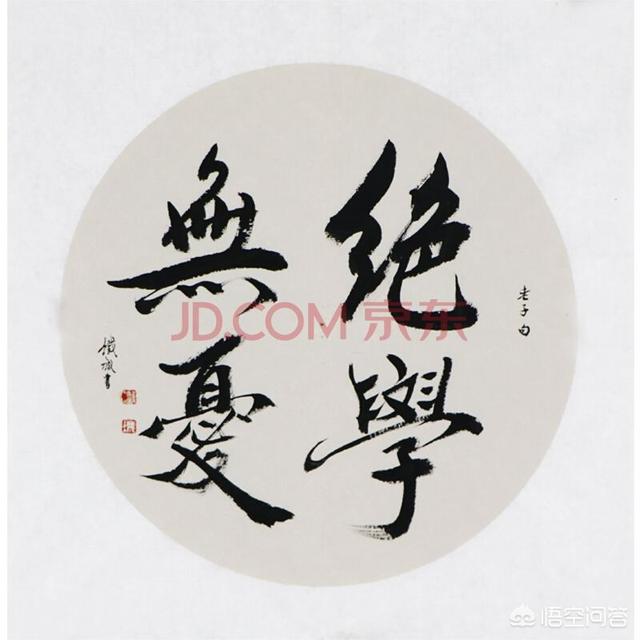 老子句
絕學
無憂
JD.COM 京东
悟空问答